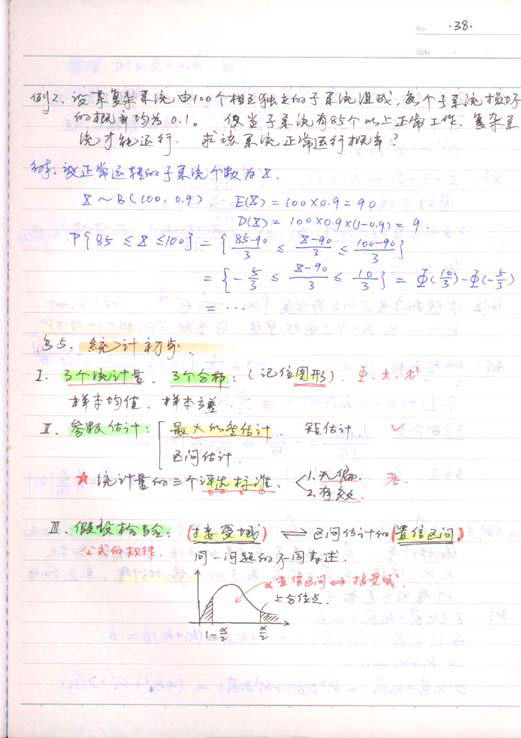 No. ·38·
Date
例2. 设某复杂系统由100个相互独立的子系统组成, 每个子系统损坏
的概率均为0.1。 仅当子系统有85个以上正常工作, 复杂系
统才能运行. 求该系统正常运行概率?
解: 设正常运转的子系统个数为X.
X ~ B(100, 0.9). E(X) = 100×0.9 = 90
D(X) = 100×0.9×(1-0.9) = 9.
P{85 ≤ X ≤ 100} = {85-90/3 ≤ X-90/3 ≤ 100-90/3}
= {-5/3 ≤ X-90/3 ≤ 10/3} = Φ(10/3) - Φ(-5/3)
= ...
§5. 统计初步.
I. 3个统计量. 3个分布: (记住图形).
样本均值. 样本方差
II. 参数估计: 最大似然估计. 矩估计. ✓
区间估计.
★ 统计量的三个评选标准. 1. 无偏. 考.
2. 有效
III. 假设检验: (接受域) ⇌ 区间估计的(置信区间)
公式的梳理. 同一问题的不同表述.
置信区间 ⇔ 接受域.
上分位点.
1-α/2 α/2